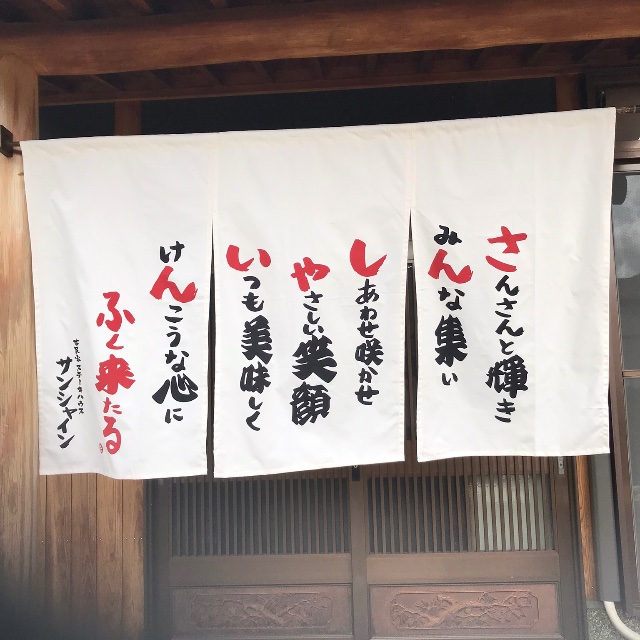 さんさんと輝き
みんな集い
しあわせ咲かせ
やさしい笑顔
いつも美味しく
けんこうな心に
ふく来たる
古民家ステーキハウス
サンシャイン